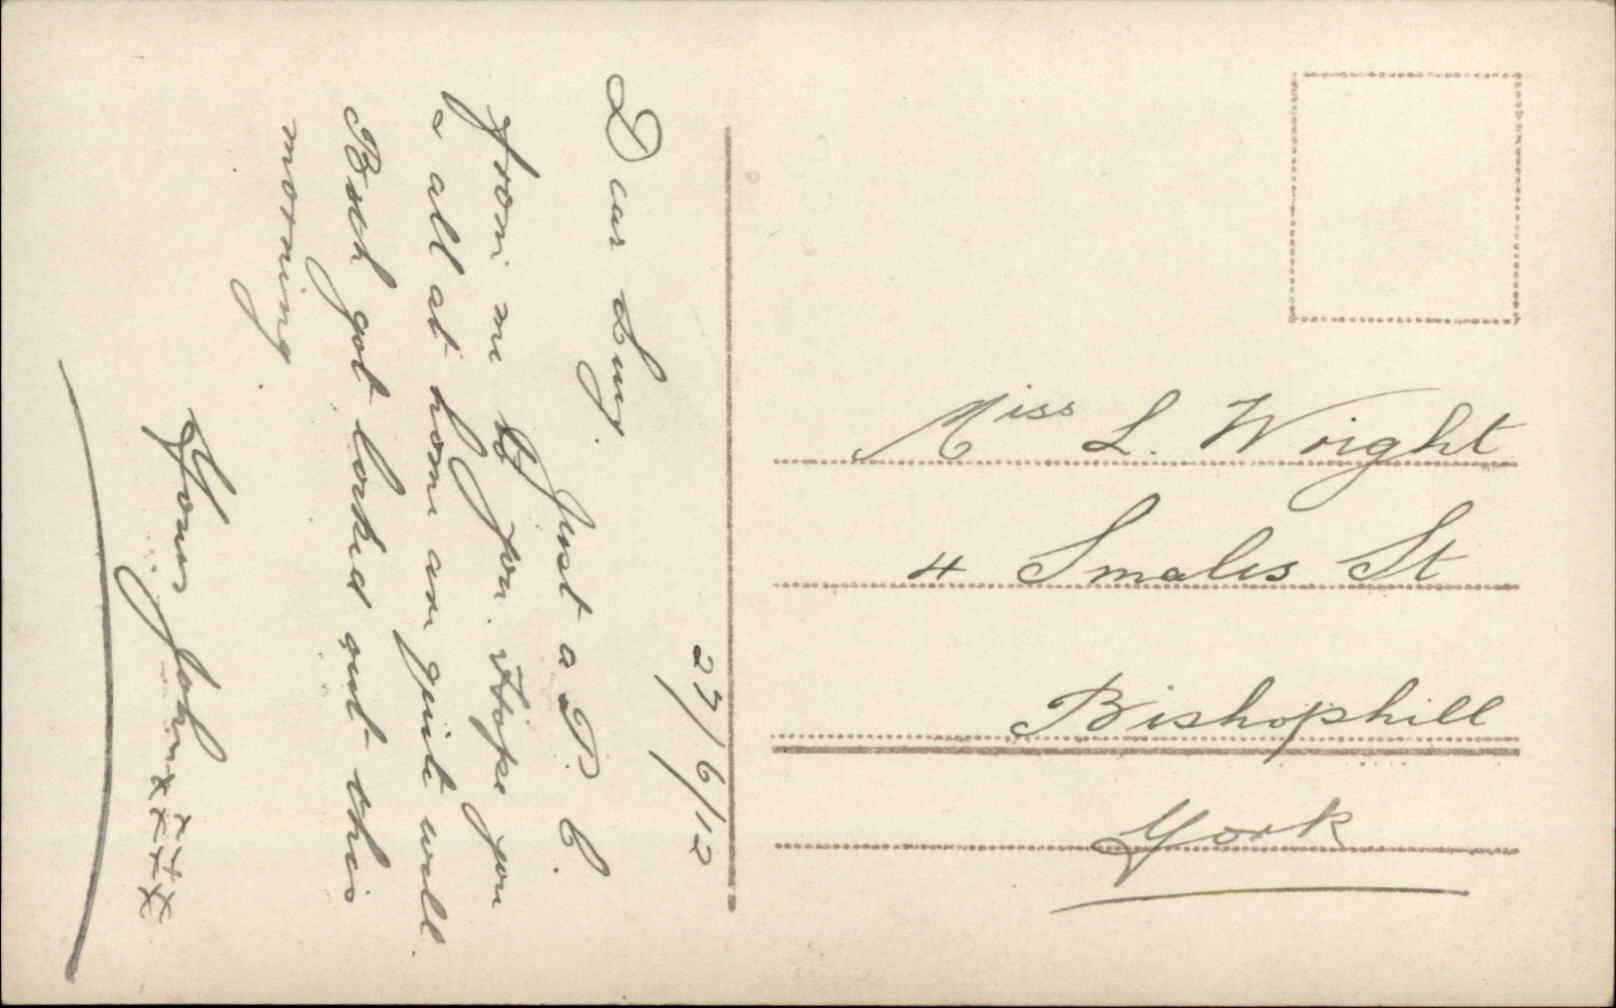 27/6/12
Dear Lucy.
Just a P. C.
from me to you. Hope you
& all at home are quite well.
Back got locked out this
morning
Yours John xxxxxxx
Miss L. Wright
4 Smales St
Bishophill
York